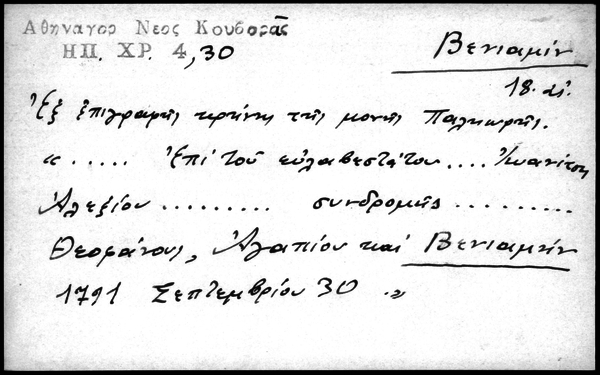 Αθηναγορ Νεος Κουβαρᾶς
ΗΠ. ΧΡ. 4, 30
Βενιαμίν
18. αἰ.
Ἐξ ἐπιγραφῆς κρήνης τῆς μονῆς
« ..... Ἐπὶ τοῦ εὐλαβεστάτου ....
Ἀλεξίου ......... συνδρομῆς .........
Θεοφάνους, Ἀγαπίου καὶ Βενιαμὴν
1791 Σεπτεμβρίου 30 .»